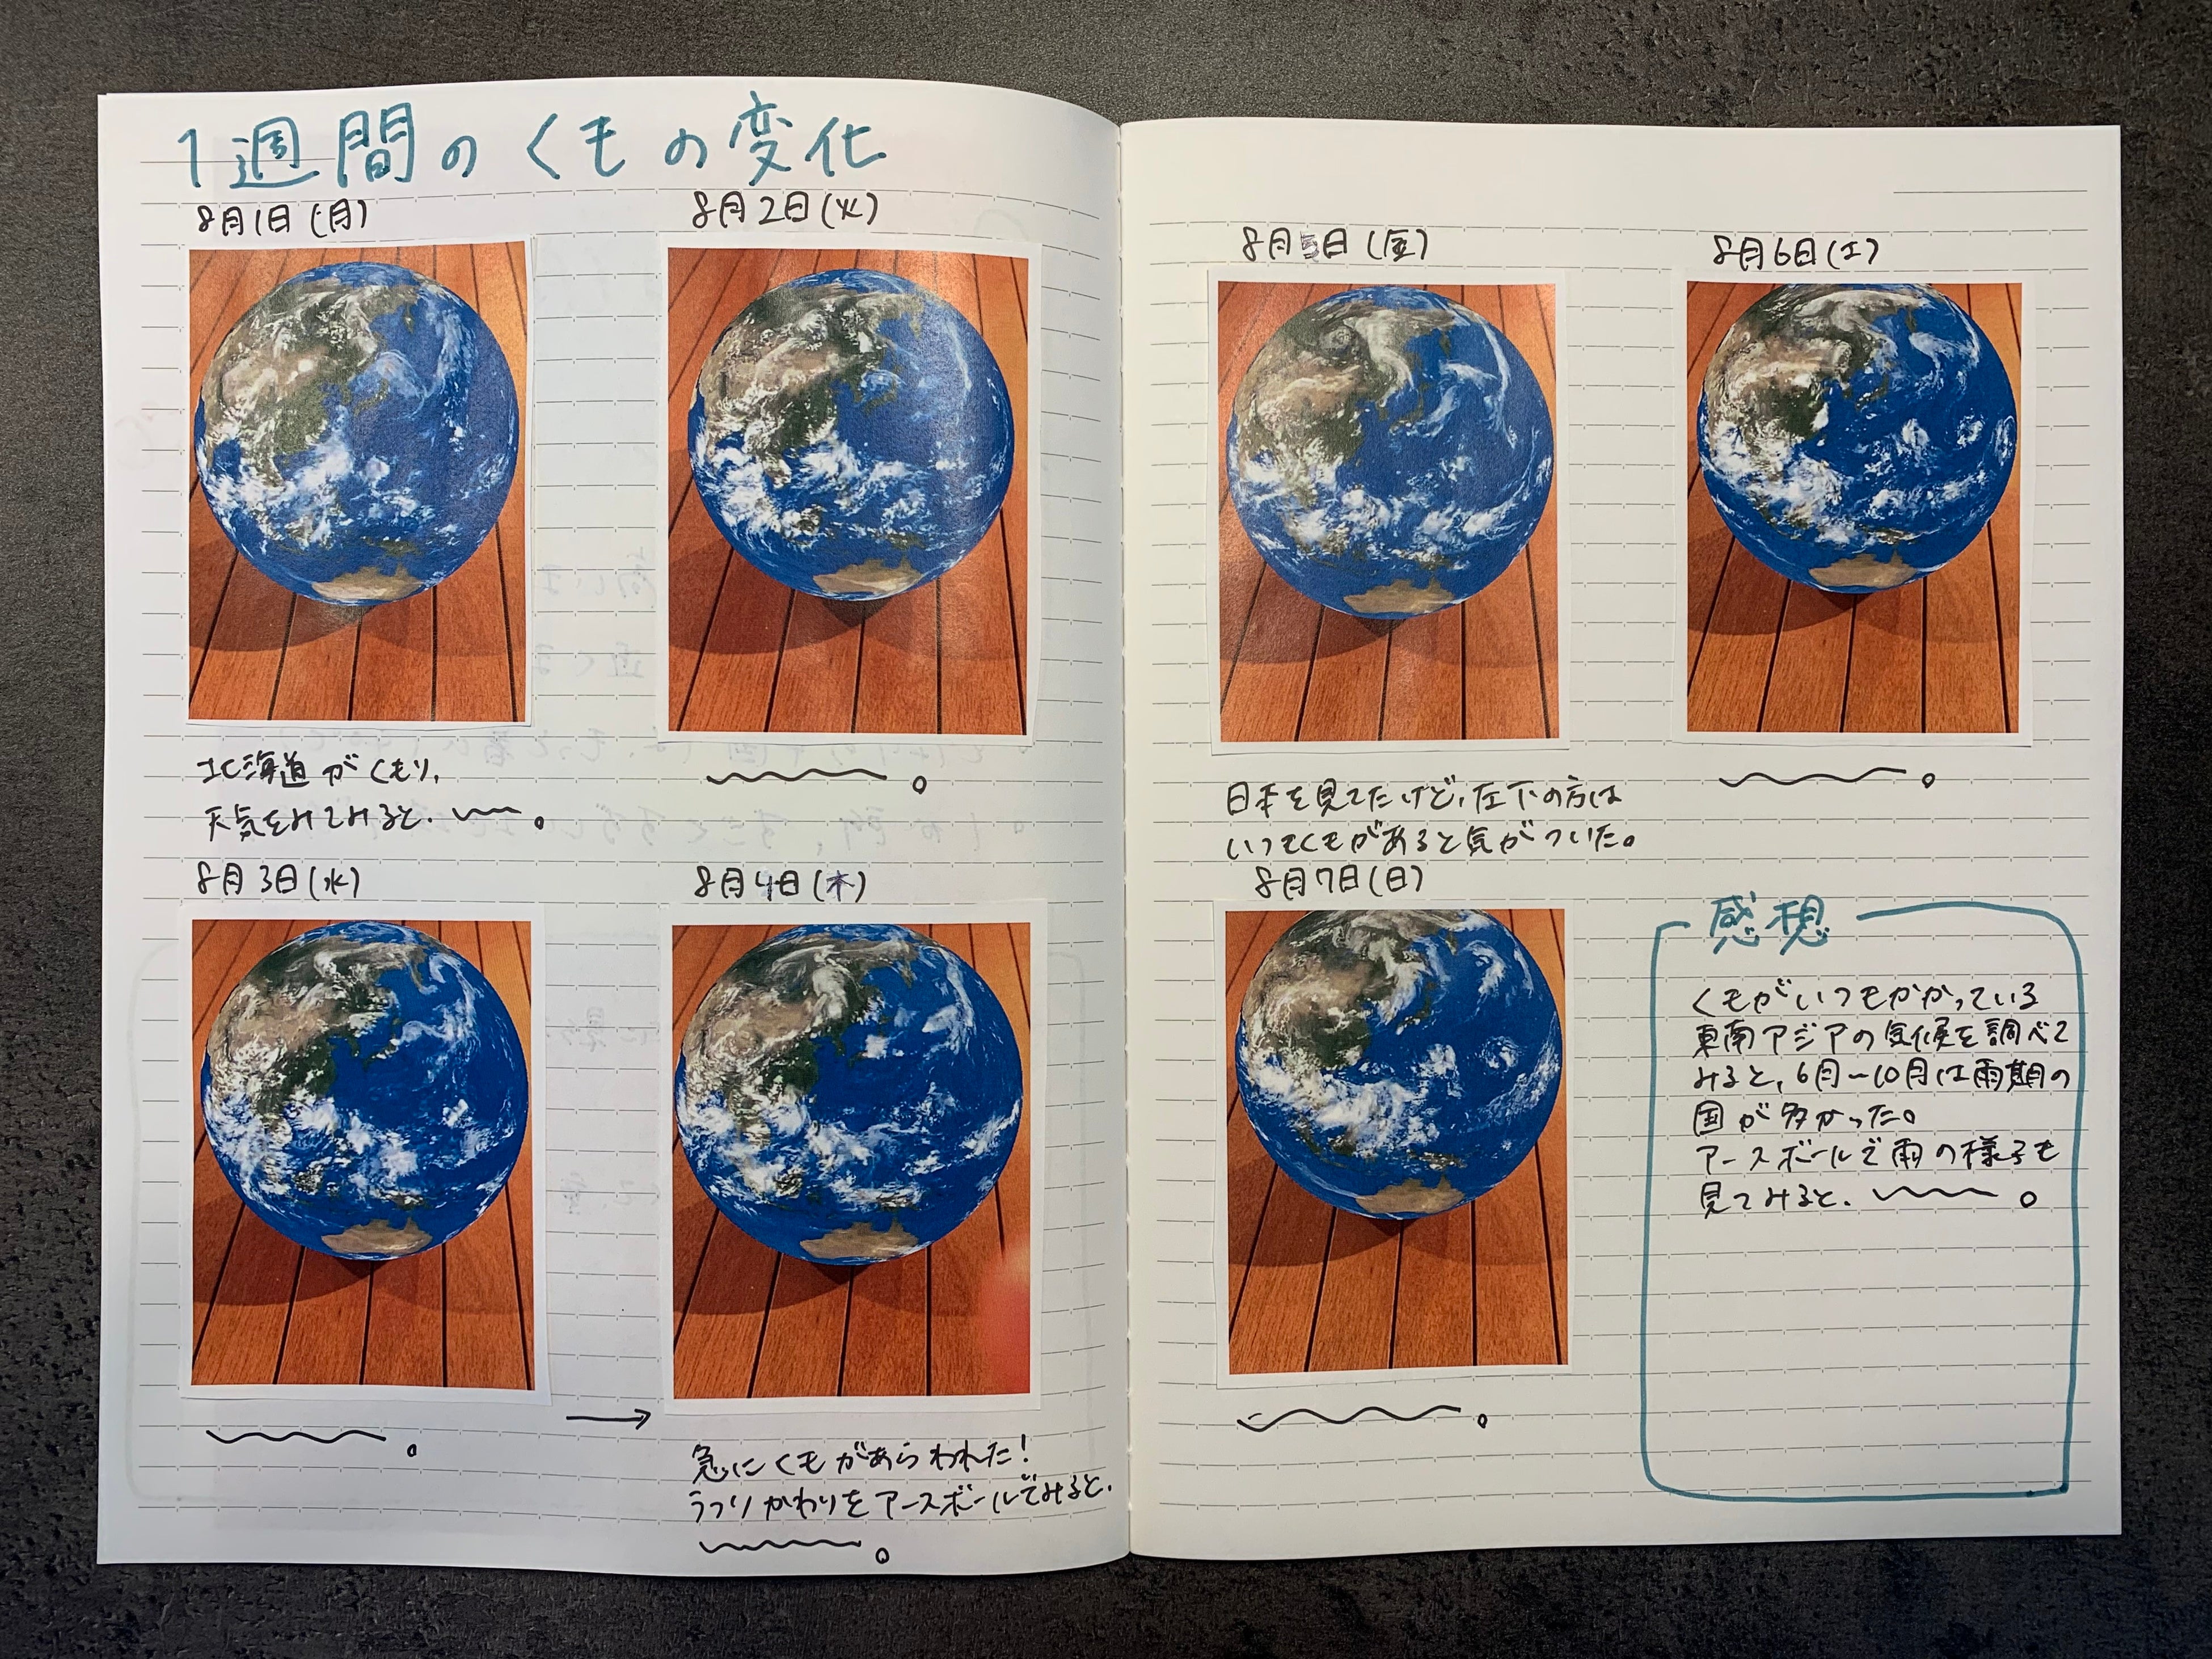 1週間のくもの変化
8月1日(月)
北海道がくもり、
天気をみてみると、 。
8月2日(火)
。
8月3日(水)
。
8月4日(木)
急にくもがあらわれた!
うつりかわりをアースボールでみると、
。
8月5日(金)
日本を見てたけど、左下の方は
いつもくもがあると気がついた。
8月6日(土)
。
8月7日(日)
。
感想
くもがいつもかかっている
東南アジアの気候を調べて
みると、6月~10月は雨期の
国が多かった。
アースボールで雨の様子も
見てみると、 。